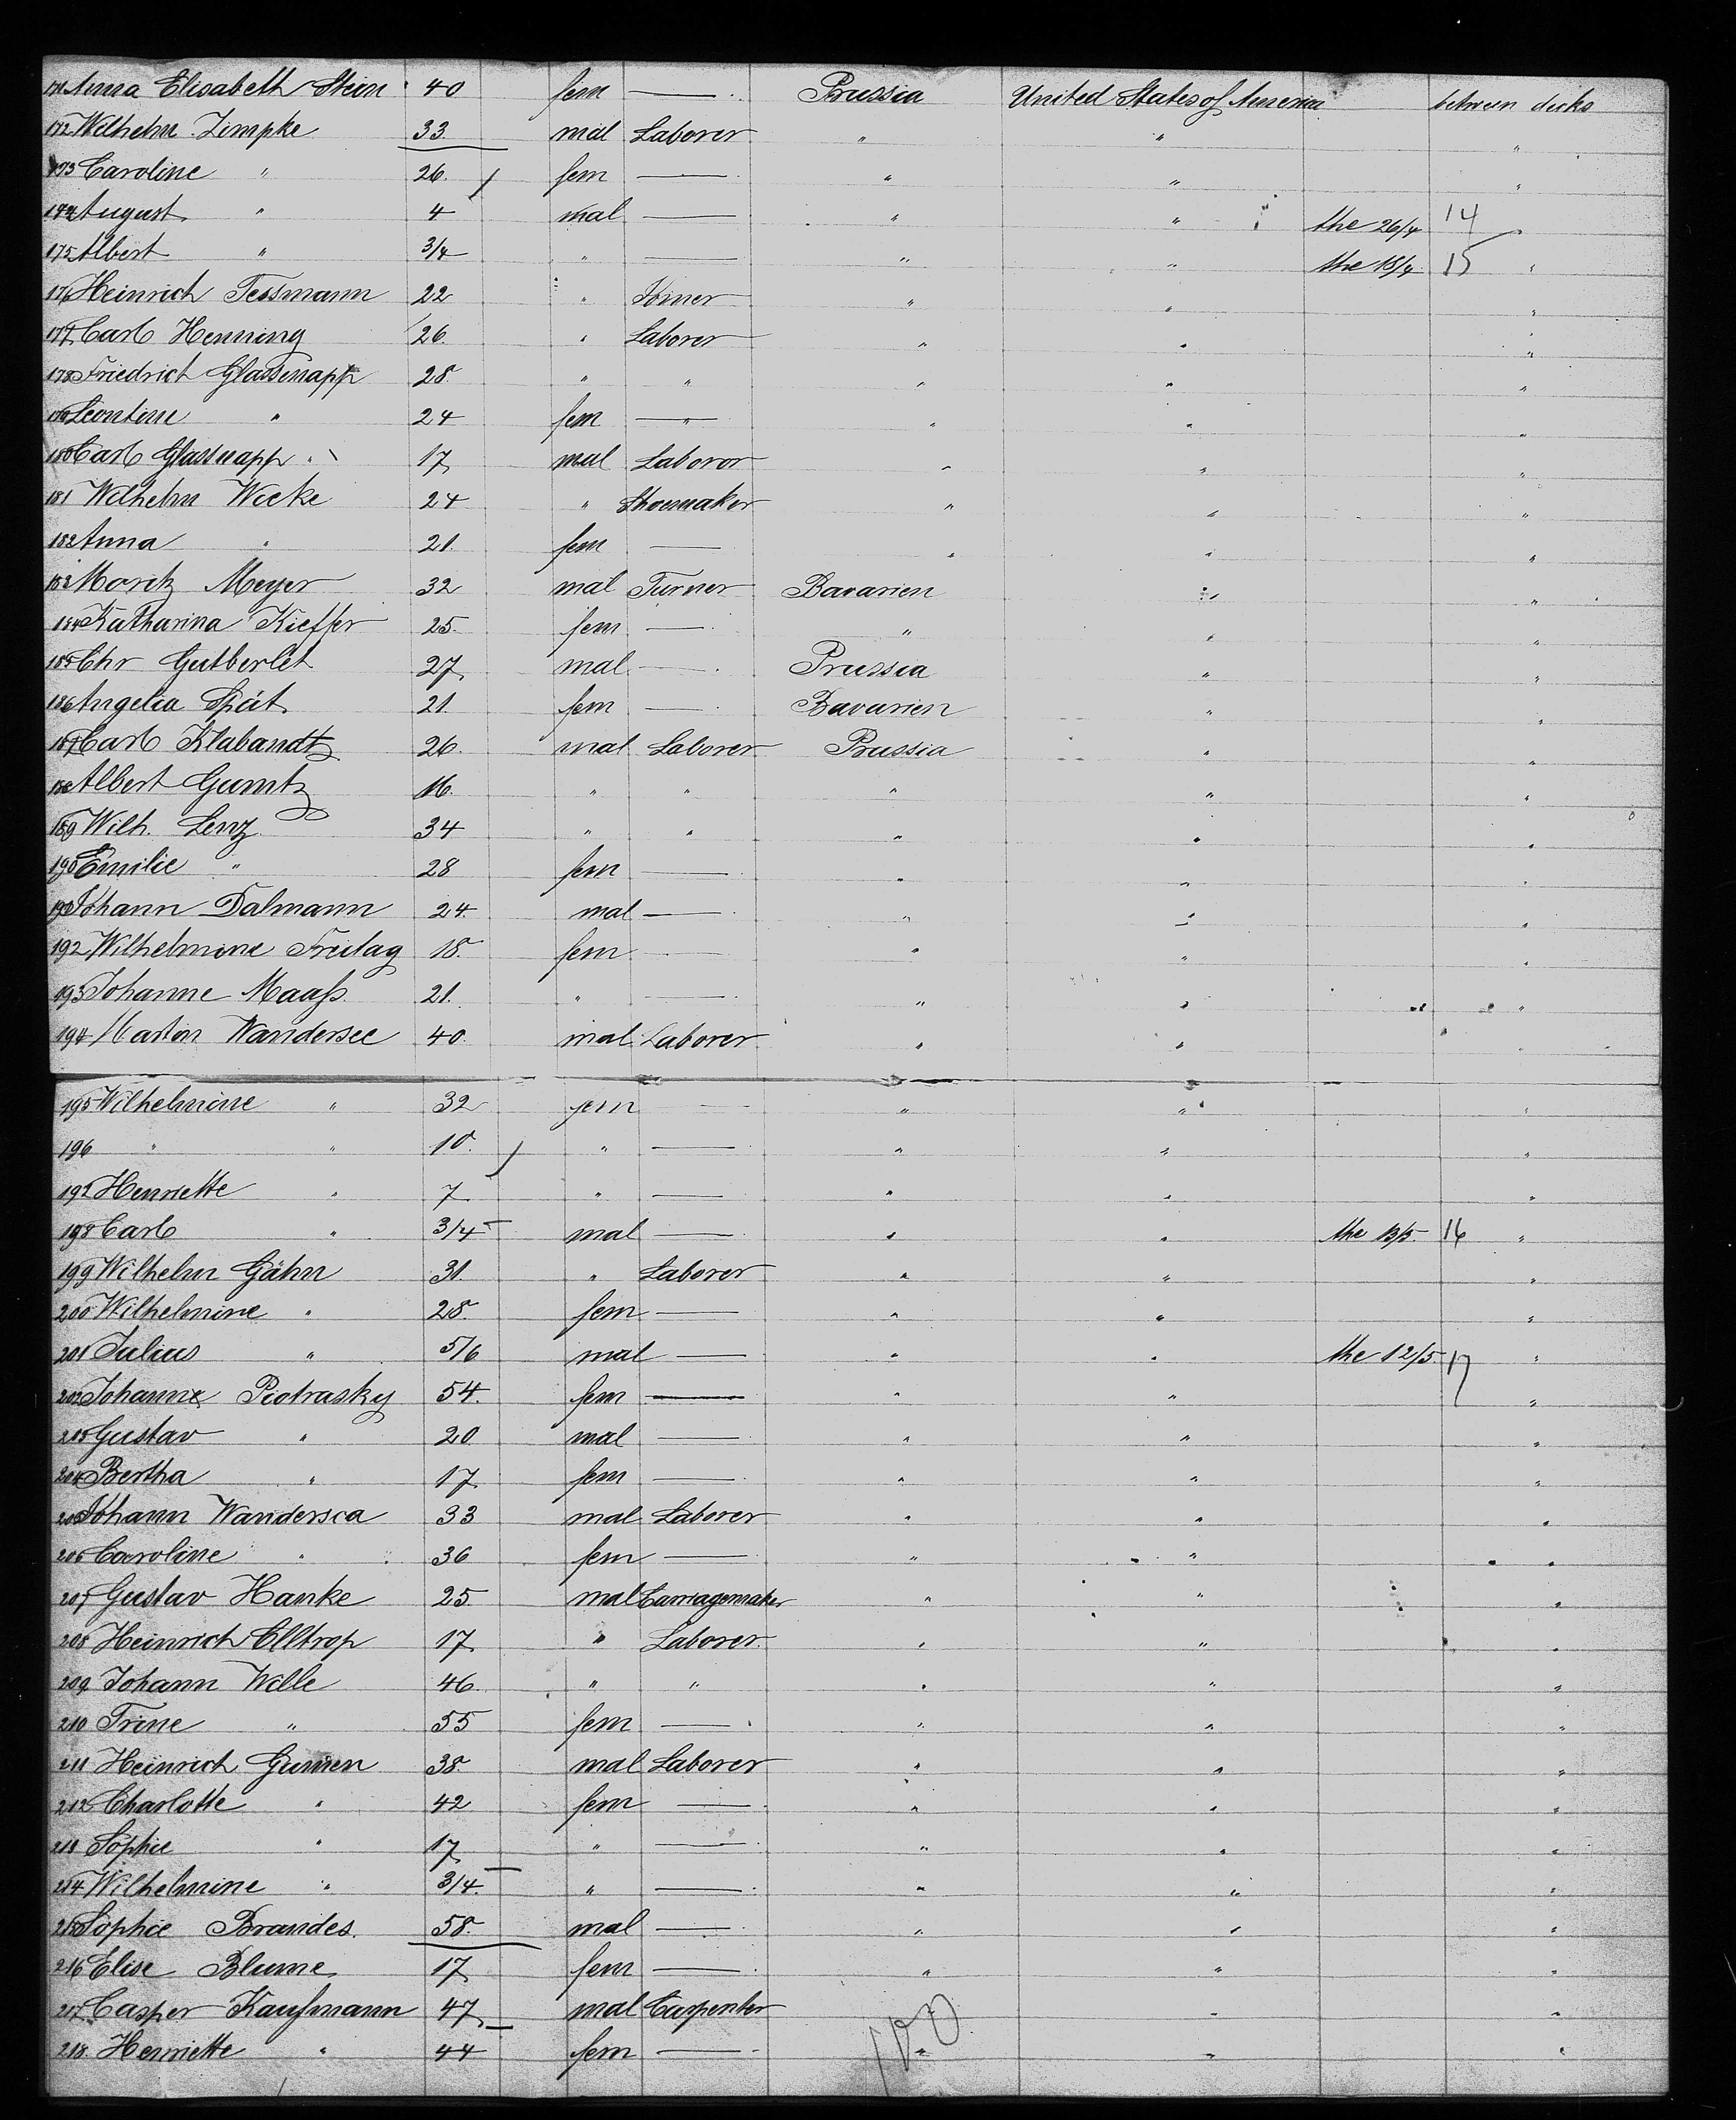 171 Anna Elisabeth Stein 40 fem — Prussia United States of America between decks
172 Wilhelm Zimpke 33 mal Laborer " " "
173 Caroline " 26 fem — " " "
174 August " 4 mal — " " the 26/4 14 "
175 Albert " 3/4 " — " " the 18/4 15 "
176 Heinrich Tessmann 22 " " " "
177 Carl Henning 26 " Laborer " " "
178 Friedrich Glassenapp 28 " " " " "
179 Leontine " 24 fem — " " "
180 Carl Glassnapp 17 mal Laboror " " "
181 Wilhelm Wicke 24 " Shoemaker " " "
182 Anna " 21 fem — " " "
183 Moritz Meyer 32 mal Turner Bavarien " "
184 Katharina Kieffer 25 fem — " " "
185 Chr Gutberlet 27 mal — Prussia " "
186 Angelia Spät 21 fem — Bavarien " "
187 Carl Klabandt 26 mal Laborer Prussia " "
188 Albert Gumtz 16 " " " " "
189 Wilh. Lenz 34 " " " " "
190 Emilie " 28 fem — " " "
191 Johann Dalmann 24 mal — " " "
192 Wilhelmine Freitag 18 fem — " " "
193 Johanne Maaſs 21 " — " " "
194 Martin Wandersee 40 mal Laborer " " "
195 Wilhelmine " 32 fem — " " "
196 " " 10 " — " " "
197 Henriette " 7 " — " " "
198 Carl " 3/4 mal — " " the 13/5 16 "
199 Wilhelm Gähn 31 " Laborer " " "
200 Wilhelmine " 28 fem — " " "
201 Julius " 5/6 mal — " " the 12/5 17 "
202 Johanne Piotrasky 54 fem — " " "
203 Gustav " 20 mal — " " "
204 Bertha " 17 fem — " " "
205 Johann Wandersea 33 mal Laborer " " "
206 Caroline " 36 fem — " " "
207 Gustav Hanke 25 mal Carriagemaker " " "
208 Heinrich Elltrop 17 " Laborer " " "
209 Johann Wille 46 " " " " "
210 Trine " 55 fem — " " "
211 Heinrich 38 mal Laborer " " "
212 Charlotte " 42 fem — " " "
213 Sophie " 17 " — " " "
214 Wilhelmine " 3/4 " — " " "
215 Sophie Brandes 58 mal — " " "
216 Elise Blume 17 fem — " " "
217 Casper Kaufmann 47 mal Carpenter " "
218 Henriette " 44 fem — " " "